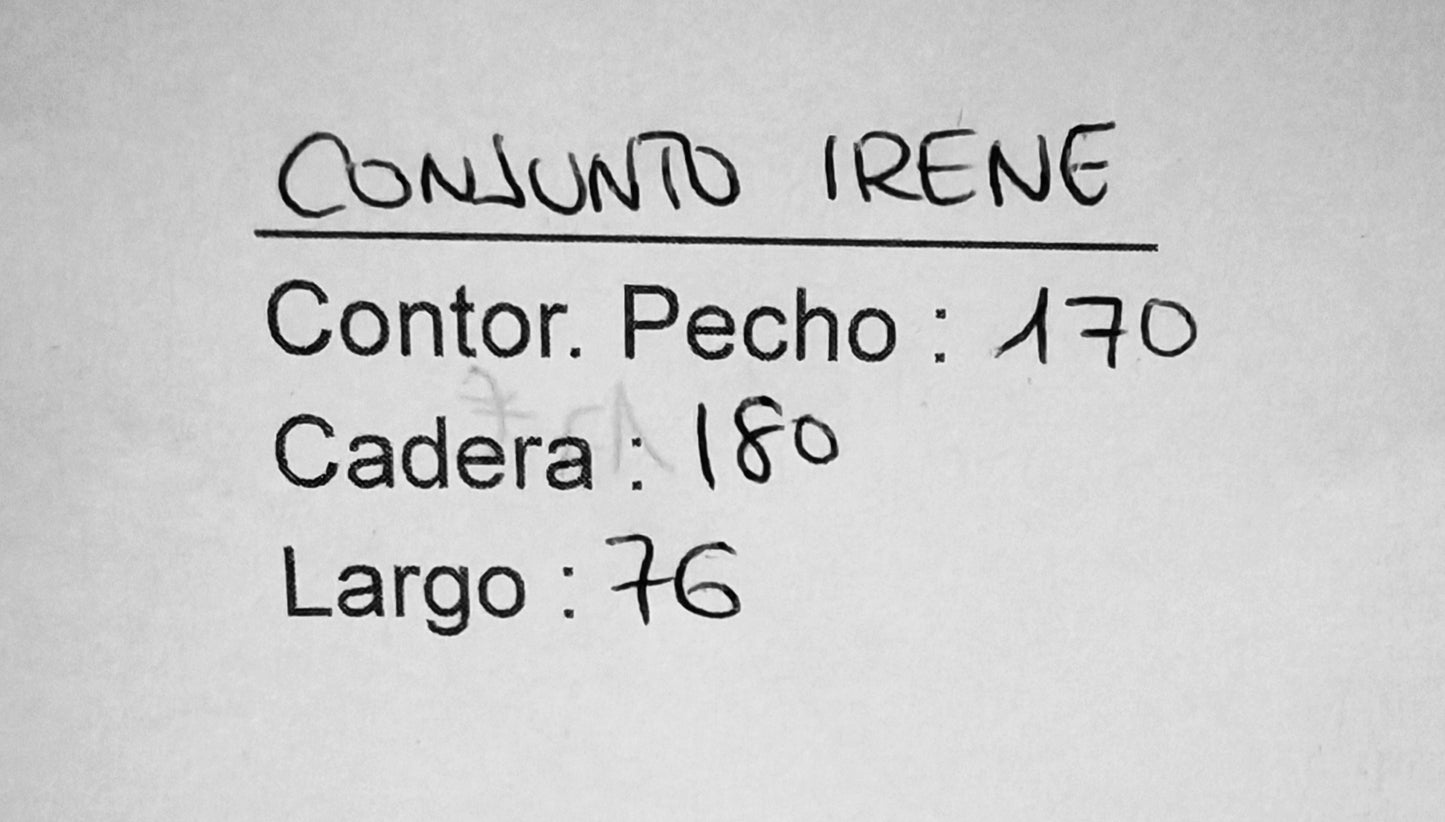 CONJUNTO IRENE
Contor. Pecho : 170
Cadera : 180
Largo : 76